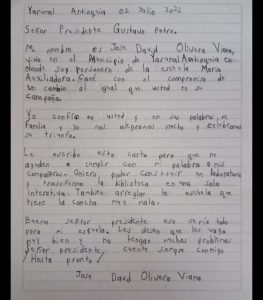 Yarumal Antioquia 02 Julio 2022
Señor Presidente Gustavo Petro.
Mi nombre es Jose David Olivera Viana,
vivo en el Municipio de Yarumal Antioquia
donde soy personero de la escuela Maria
Auxiliadora. Gané con el compromiso de
un cambio al igual que usted en su
campaña.
Yo confio en usted y en su palabra, mi
Familia y yo nos alegramos mucho y celebramos
su triunfo.
Le escribo esta carta para que me
ayude a cumplir con mi palabra a mis
compañeros. Quiero poder construir un laboratorio
y transformar la biblioteca en una sala
interativa. Tambien arreglar la escuela que
tiene la cancha muy mala.
Bueno señor presidente eso seria todo
para mi escuela. Les deseo que les vaya
muy bien y no tengan muchos problemas
señor presidente, cuente siempre conmigo
¡Hasta pronto!
Jose David Olivera Viana